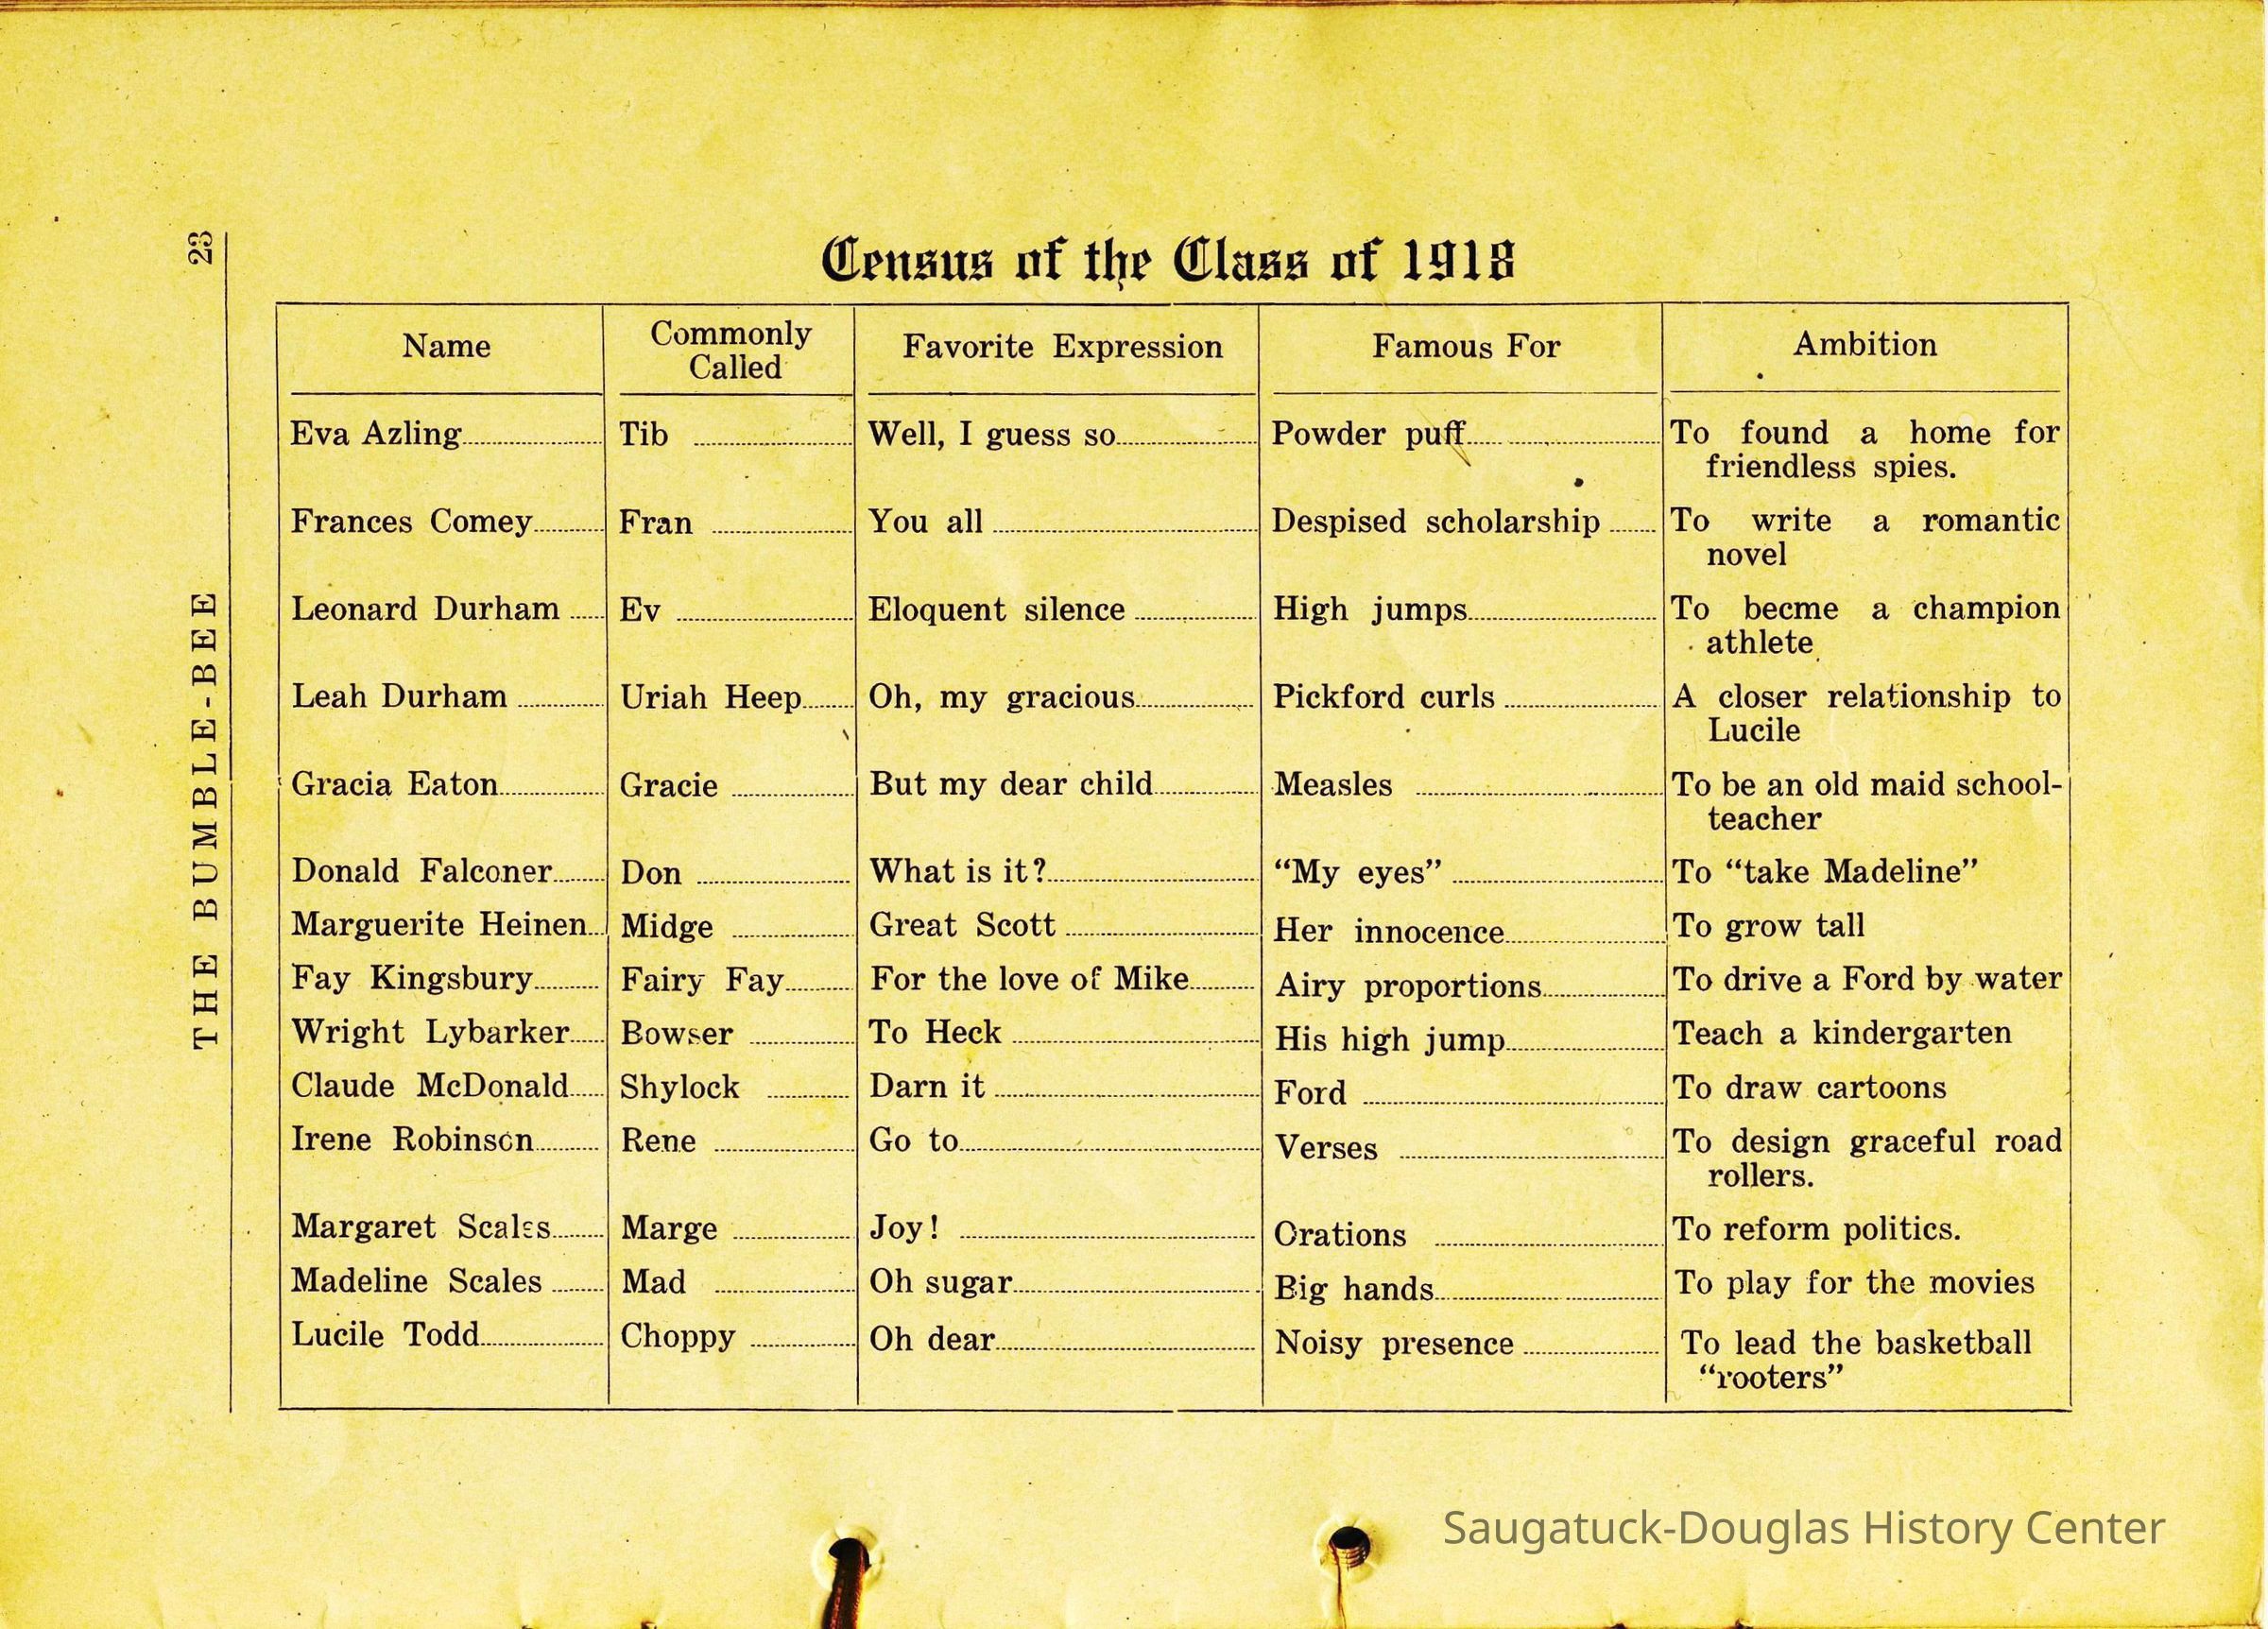 23
THE BUMBLE-BEE
Census of the Class of 1918
Name Commonly Called Favorite Expression Famous For Ambition
Eva Azling Tib Well, I guess so Powder puff To found a home for
friendless spies.
Frances Comey Fran You all Despised scholarship To write a romantic
novel
Leonard Durham Ev Eloquent silence High jumps To becme a champion
athlete
Leah Durham Uriah Heep Oh, my gracious Pickford curls A closer relationship to
Lucile
Gracia Eaton Gracie But my dear child Measles To be an old maid school-
teacher
Donald Falconer Don What is it? “My eyes” To “take Madeline”
Marguerite Heinen Midge Great Scott Her innocence To grow tall
Fay Kingsbury Fairy Fay For the love of Mike Airy proportions To drive a Ford by water
Wright Lybarker Bowser To Heck His high jump Teach a kindergarten
Claude McDonald Shylock Darn it Ford To draw cartoons
Irene Robinson Rene Go to Verses To design graceful road
rollers.
Margaret Scales Marge Joy! Orations To reform politics.
Madeline Scales Mad Oh sugar Big hands To play for the movies
Lucile Todd Choppy Oh dear Noisy presence To lead the basketball
“rooters”
Saugatuck-Douglas History Center